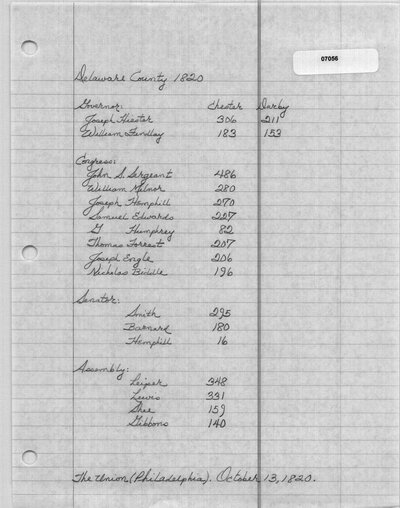 07056
Delaware County 1820
Governor: Chester Darby
Joseph Hiester 306 211
William Findlay 183 153
Congress:
John S. Sergeant 486
William Milnor 280
Joseph Hemphill 270
Samuel Edwards 227
G Humphrey 82
Thomas Forrest 207
Joseph Engle 206
Nicholas Biddle 196
Senator:
Smith 295
Barnard 180
Hemphill 16
Assembly:
Leiper 348
Lewis 331
Shee 159
Gibbons 140
The Union, (Philadelphia). October 13, 1820.